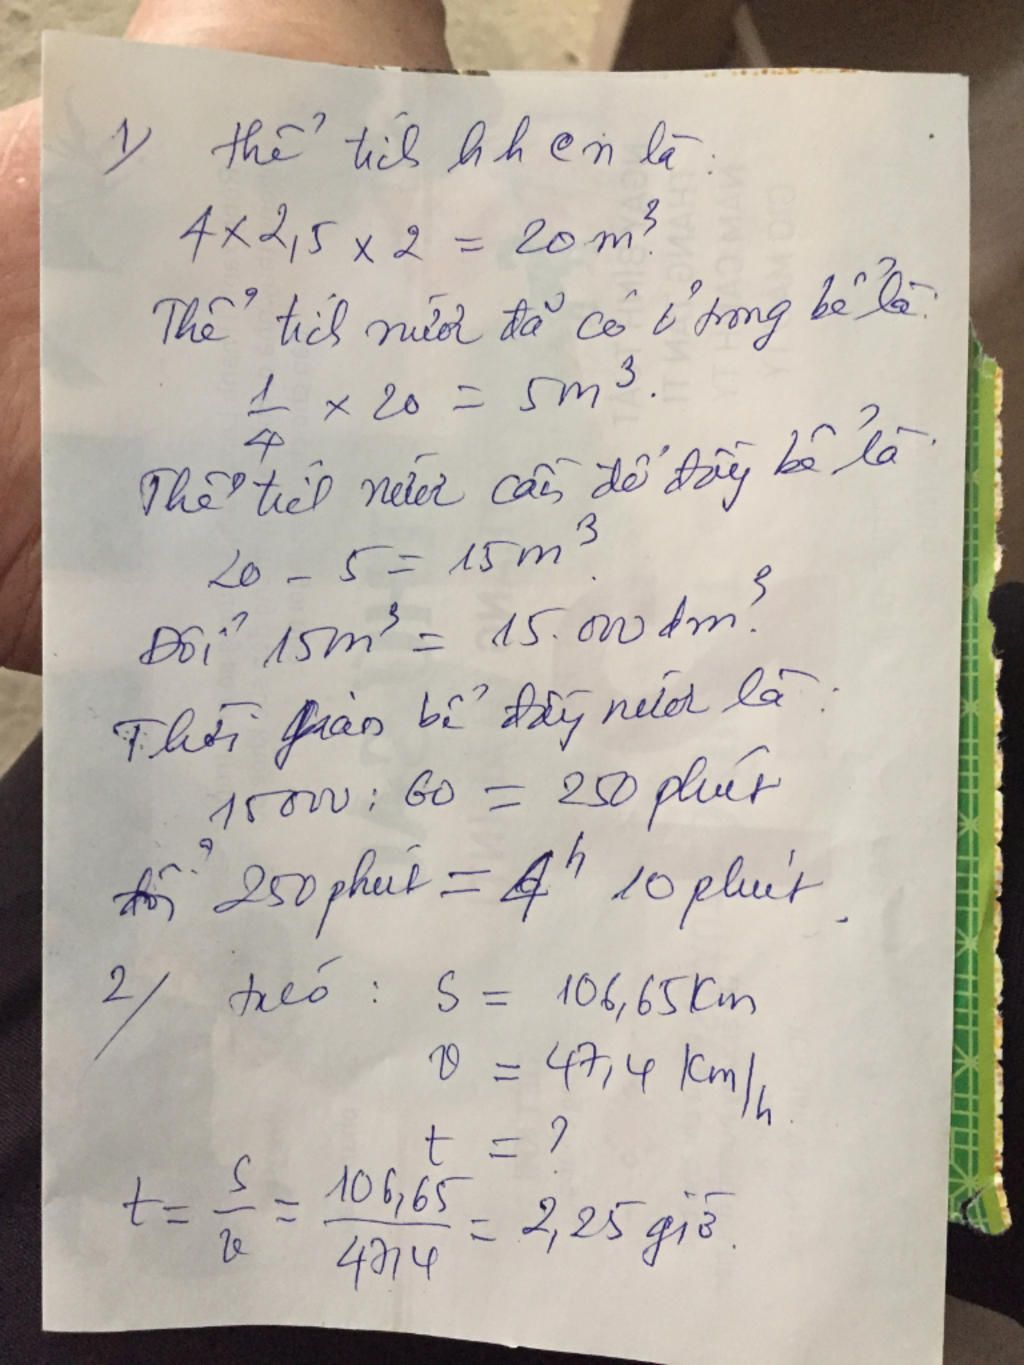 1) Thể tích hhcn là:
4 x 2,5 x 2 = 20 m³.
Thể tích nước đã có ở trong bể là:
1/4 x 20 = 5m³.
Thể tích nước cần để đầy bể là:
20 - 5 = 15m³.
Đổi 15m³ = 15.000 dm³.
Thời gian bể đầy nước là:
15000 : 60 = 250 phút
đổi 250 phút = 4h 10 phút.
2/ ta có : S = 106,65 Km
v = 47,4 Km/h
t = ?
t = S/v = 106,65/47,4 = 2,25 giờ.